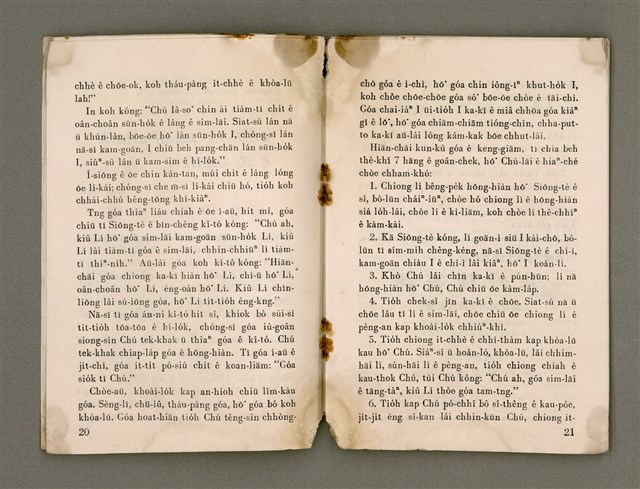 chhè ê chōe-ok, koh tháu-pàng it-chhè ê khòa-lū
lah!”
In koh kóng: “Chú Iâ-so͘ chin ài tiàm-tì chit ê
oân-choân sūn-hòk ê lâng ê sim-lāi. Siat-sú lán nā
ū khùn-lân, bōe-ōe hō͘ lán sūn-hòk I, chóng-sī lán
nā-sī kam-goān, I chiū beh pang-chān lán sūn-hòk
I, siúⁿ-sù lán ū kam-sim ê hí-lòk.”
Í-siōng ê ōe chin kán-tan, mûi chit ê lâng lóng
ōe lí-kái; chóng-sī che m̄-sī lí-kái chiū hó, tiòh koh
chhái-chhú hêng-tōng khì-kiâⁿ.
Tng góa thiaⁿ liáu chiah ê ōe í-āu, hit mî, góa
chiū tī Siōng-tè ê bīn-chêng kî-tó kóng: “Chú ah,
kiû Lí hō͘ góa sim-lāi kam-goān sūn-hòk Lí, kiû
Lí lâi tiàm-tì góa ê sim-lāi, chhin-chhiūⁿ lí tiàm-
tī thiⁿ-nih.” Aū-lâi góa koh kî-tó kóng: “Hiān-
chāi góa chiong ka-kī hiàn hō͘ Lí, chí-ū hō͘ Lí,
oân-choân hō͘ Lí, éng-oán hō͘ Lí. Kiû Lí chin-
liōng lâi sú-iōng góa, hō͘ Lí tit-tiòh êng-kng.”
Nā-sī tī góa án-ni kî-tó hit sî, khiok bô sûi-sî
tit-tiòh tōa-tōa ê hí-lòk, chóng-sī góa iû-goân
siong-sìn Chú tek-khak ū thiaⁿ góa ê kî-tó. Chú
tek-khak chiap-làp góa ê hōng-hiàn. Tī góa í-āu ê
jit-chí, góa it-tit pó-siú chit ê koan-liām: “Góa
siòk tī Chú.”
Chòe-āu, khoài-lòk kap an-hioh chiū lîm-kàu
góa. Sèng-lī, chū-iû, tháu-pàng góa, hō͘ góa bô koh
khòa-lū. Góa hoat-hiān tiòh Chú têng-sin chhòng-
20
chō góa ê ì-chì, hō͘ góa chin iông-īⁿ khut-hòk I,
koh chòe chōe-chōe góa só͘ bōe-ōe chòe ê tāi-chì.
Góa chai-iáⁿ I ūi-tiòh I ka-kī ê miâ chhōa góa kiâⁿ
gī ê lō͘, hō͘ góa chiām-chiām tiōng-chìn, chha-put-
to ka-kī aū-lâi lóng kám-kak bōe chhut-lâi.
Hiān-chāi kun-kù góa ê keng-giām, tī chia beh
thê-khí 7 hāng ê goân-chek, hō͘ Chú-lāi ê hiaⁿ-ché
chòe chham-khó:
1. Chiong lí bêng-pèk hōng-hiàn hō͘ Siōng-tè ê
sî, bô-lūn cháiⁿ-iūⁿ, chòe hó chiong lí ê hōng-hiàn
siá lòh-lâi, chòe lí ê kì-liām, koh chòe lí thê-chhíⁿ
ê kàm-kài.
2. Kā Siōng-tè kóng, lí goān-ì siū I kái-chō, bô-
lūn tī sím-mih chêng-kéng, nā-sī Siōng-tè ê chí-ì,
kam-goān chiàu I ê chí-ì lâi kiâⁿ, hō͘ I koán-lí.
3. Khò Chú lâi chīn ka-kī ê pún-hūn; lí nā
hōng-hiàn hō͘ Chú, Chú chiū ōe kàm-làp.
4. Tiòh chek-sî jīn ka-kī ê chōe. Siat-sú nā ū
chōe lâu tī lí ê sim-lāi, chōe chiū ōe chiong lí ê
pêng-an kap khoài-lòk chhiúⁿ-khì.
5. Tiòh chiong it-chhè ê chhì-thàm kap khòa-lū
kau hō͘ Chú. Siáⁿ-sī ū hoân-ló, khòa-lū, lâi chhim-
hāi lí, sún-hāi lí ê pêng-an, tiòh chiong chiah ê
kau-thok Chú, tùi Chú kóng: “Chú ah, góa sim-lāi ê
tāng-tàⁿ, kiû Lí thòe góa tam-tng.”
6. Tiòh kap Chú pó-chhî bô sî-thêng ê kau-pôe,
jit-jit éng sî-kan lâi chhin-kūn Chú, chiong it-
21